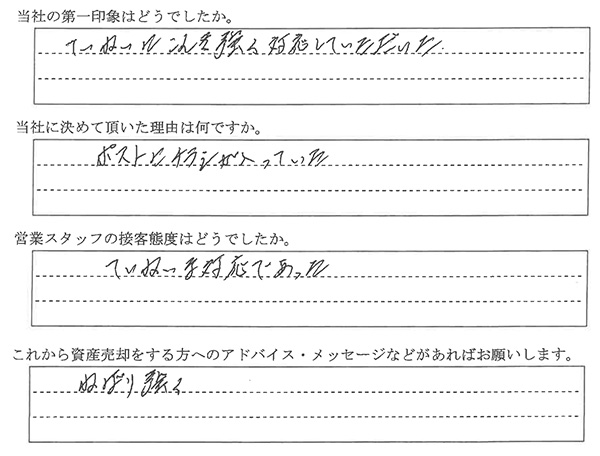 当社の第一印象はどうでしたか。
ていねいにこんき強く対応していただいた.
当社に決めて頂いた理由は何ですか。
ポストにチラシが入っていた
営業スタッフの接客態度はどうでしたか。
ていねいな対応であった
これから資産売却をする方へのアドバイス・メッセージなどがあればお願いします。
ねばり強く